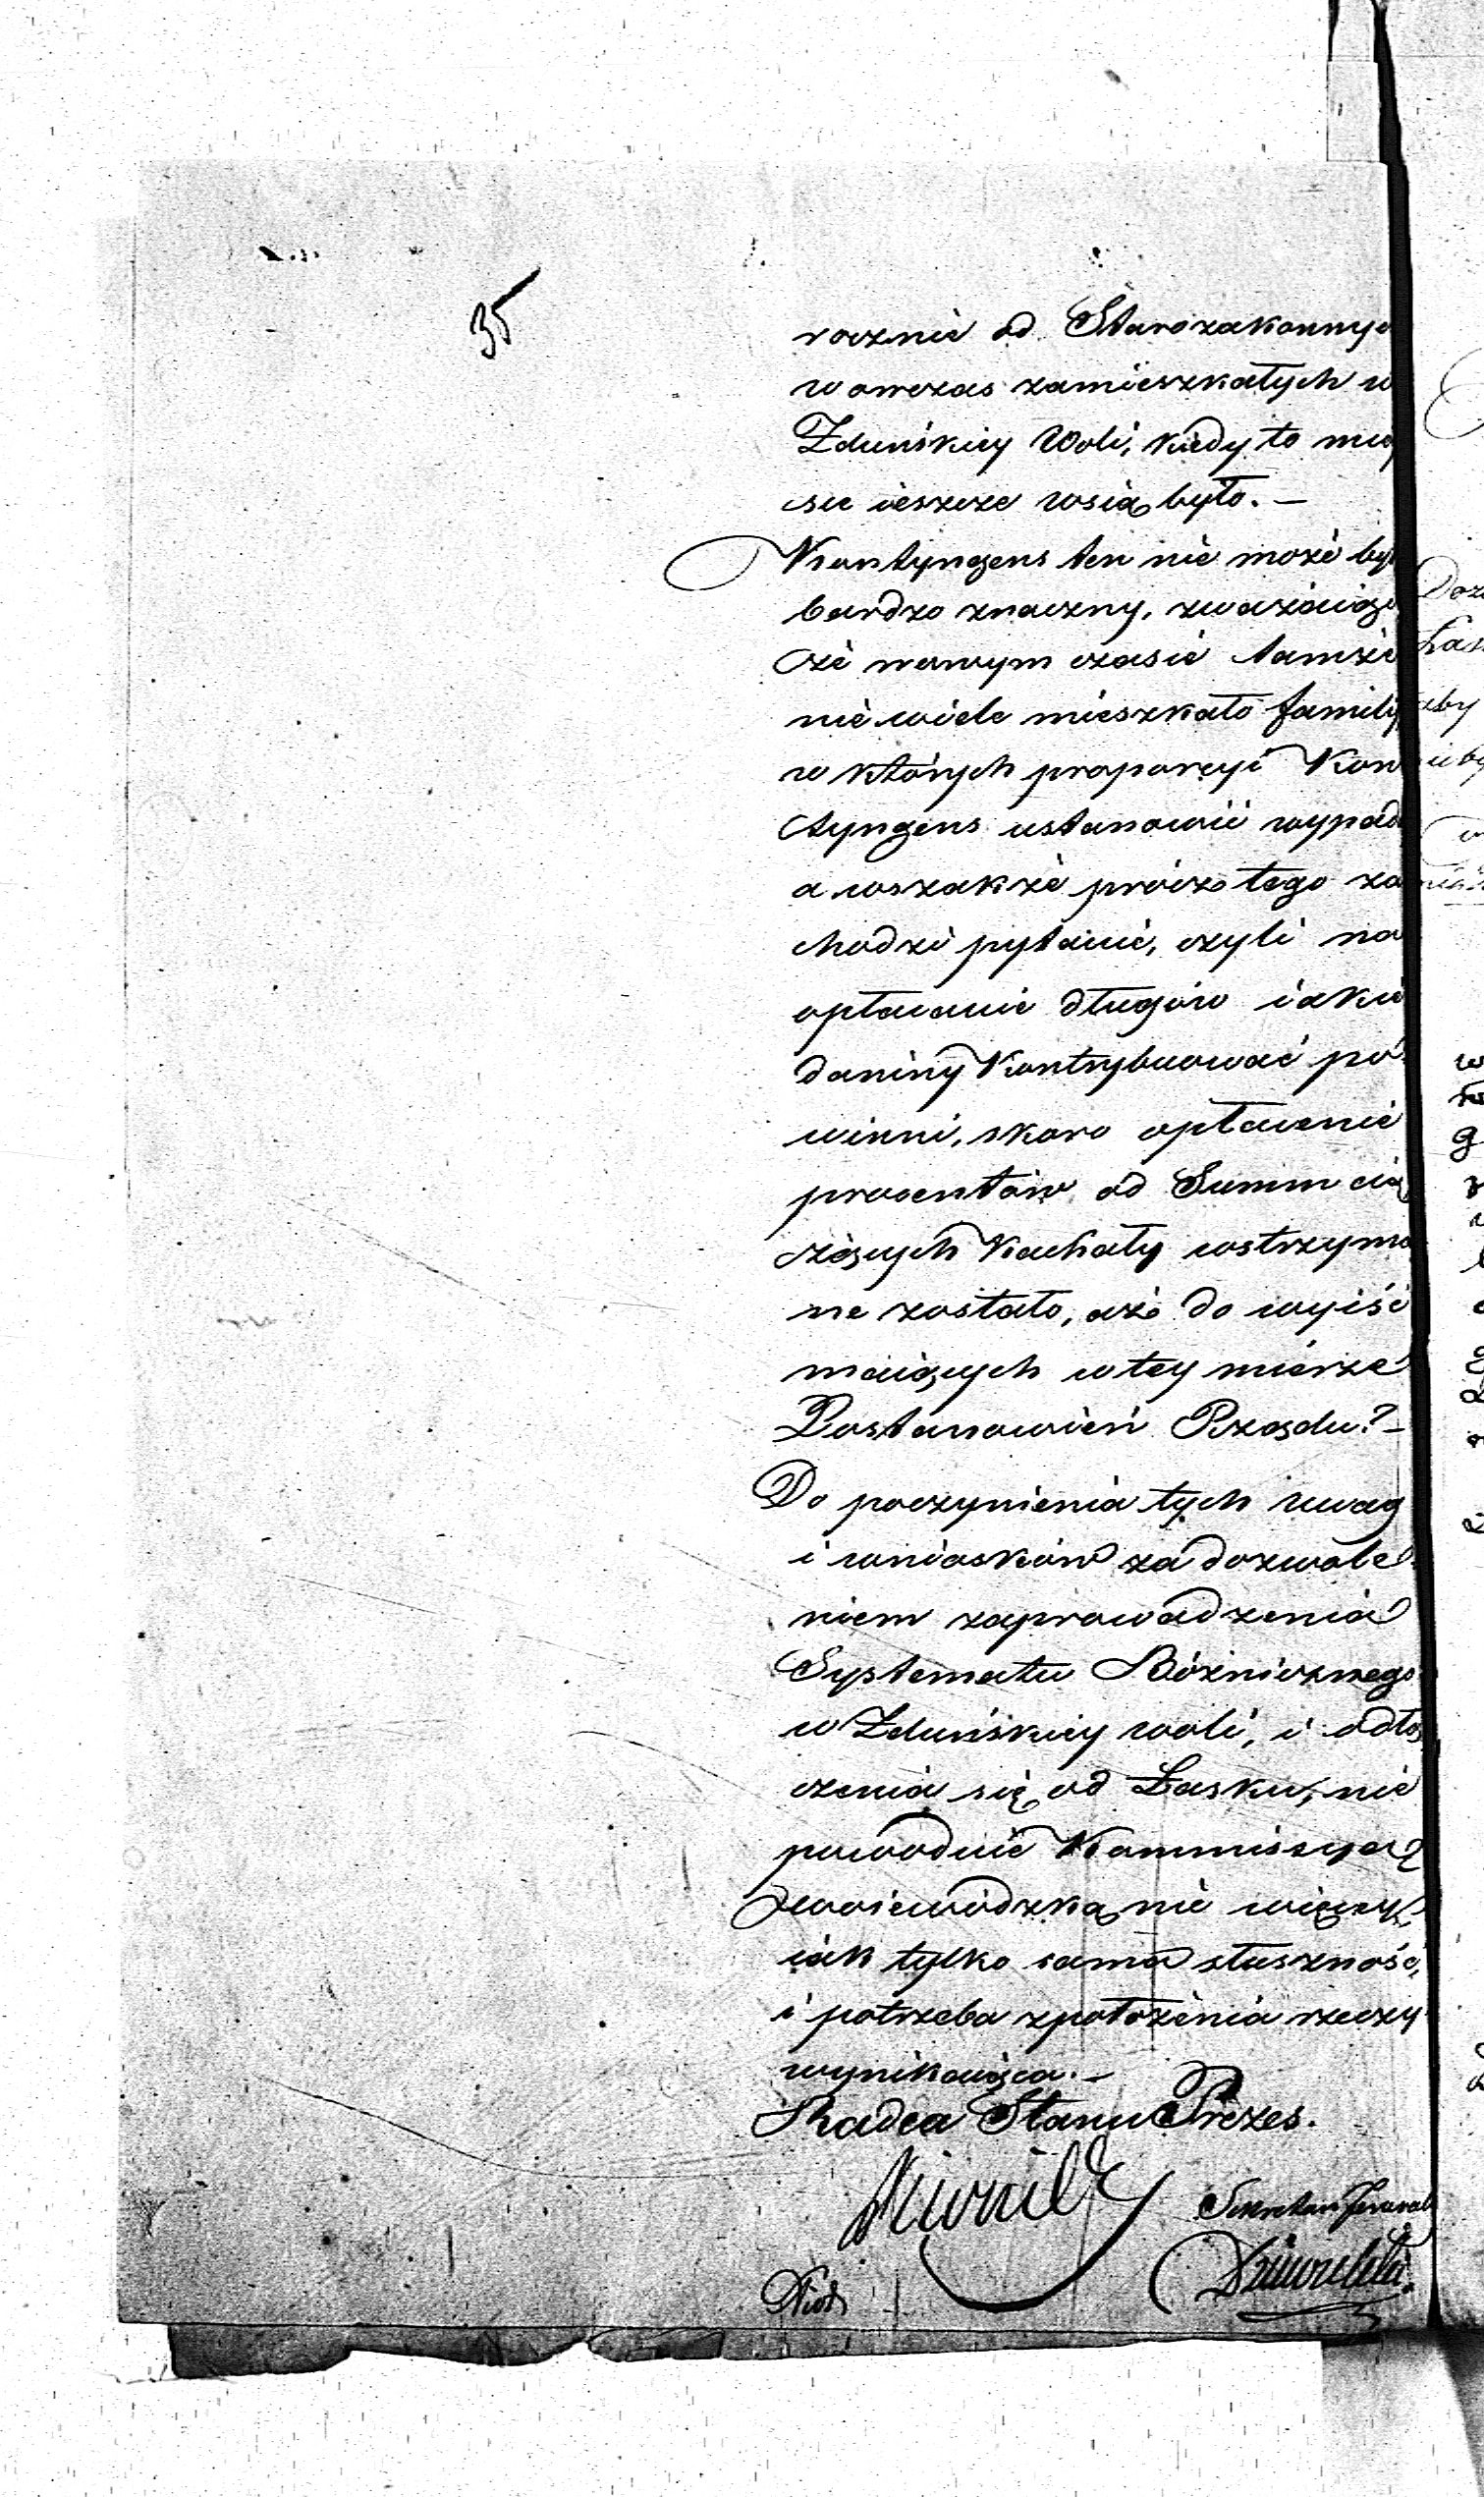 35
rocznie od Starozakonnych
wowczas zamieszkałych w
Zduńskiey Woli, kiedy to miey
sce ieszcze wsią było. —
Kontyngens ten nie może być
bardzo znaczny, zważaiąc
że wowym czasie tamże
nie wiele mieszkało familiy
w których proporcyi Kon
tyngens ustanowić wypada
a wszakże prócz tego za
chodzi pytanie, czyli na
opłacanie długów iakie
daniny Kontrybuować po
winni, skoro opłacenie
procentów od Summ cią
żących Kachały wstrzyma
ne zostało, aż do wyiść
maiących w tey mierze
Postanowień Rządu? —
Do poczynienia tych uwag
i wniosków za dozwole
niem zaprowadzenia
Systematu Bóżnicznego
w Zduńskiey woli, i odłą
czenia się od Łasku, nie
powodnie Kommissyą
Woiewódzką nie więcey
iak tylko sama słuszność,
i potrzeba z położenia rzeczy
wynikaiąca. —
Radca Stanu Prezes.
Sekretarz Jeneral